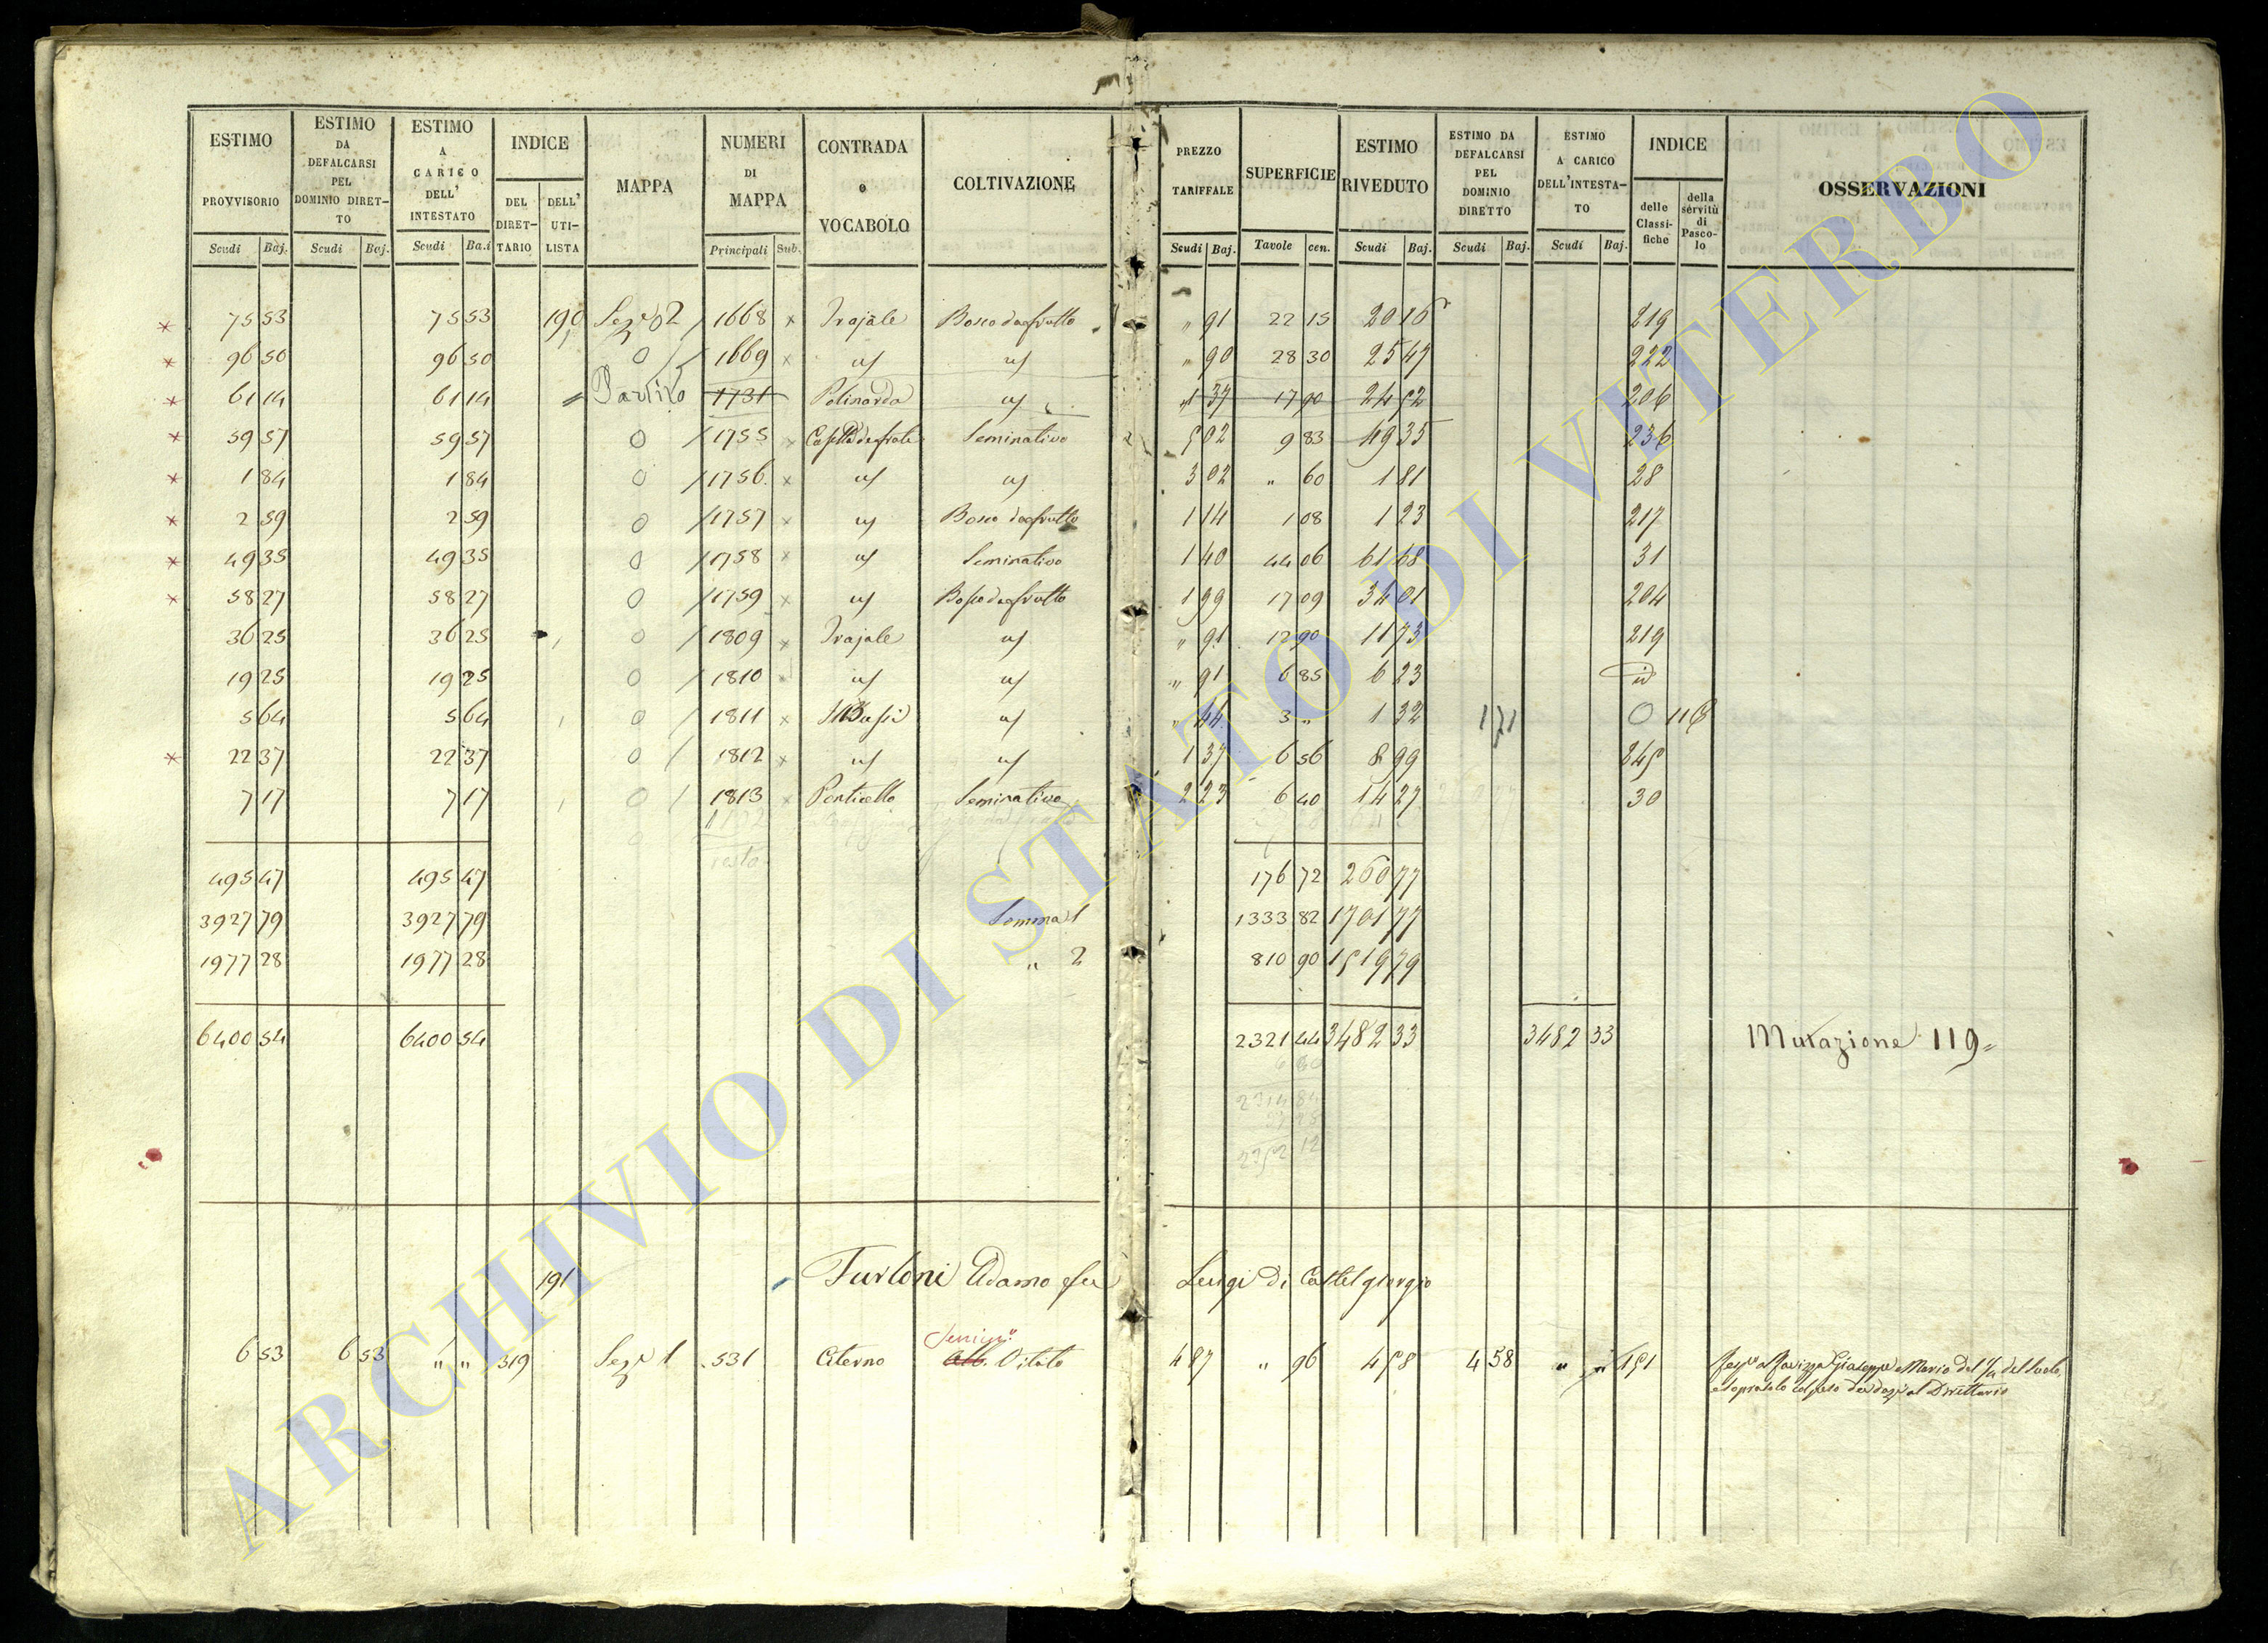 ESTIMO PROVVISORIO Scudi Baj.
ESTIMO DA DEFALCARSI PEL DOMINIO DIRETTO Scudi Baj.
ESTIMO A CARICO DELL' INTESTATO Scudi Baj.
INDICE DEL DIRETTARIO DELL' UTILISTA
MAPPA
NUMERI DI MAPPA Principali Sub.
CONTRADA o VOCABOLO
COLTIVAZIONE
PREZZO TARIFFALE Scudi Baj.
SUPERFICIE Tavole cen.
ESTIMO RIVEDUTO Scudi Baj.
ESTIMO DA DEFALCARSI PEL DOMINIO DIRETTO Scudi Baj.
ESTIMO A CARICO DELL'INTESTATO Scudi Baj.
INDICE delle Classifiche della servitù di Pascolo
OSSERVAZIONI
75 53 75 53 190 Sez 2 1668 x Trajale Bosco da frutto " 91 22 15 20 16 219
96 50 96 50 0 1669 x " 90 28 30 25 47 222
61 14 61 14 1731 Polinarda 1 37 17 90 24 52 206
59 57 59 57 0 1755 x Seminativo 5 02 9 83 49 35 236
1 84 1 84 0 1756 x 3 02 " 60 1 81 28
2 59 2 59 0 1757 x Bosco da frutto 1 14 1 08 1 23 217
49 35 49 35 0 1758 x Seminativo 1 40 44 06 61 68 31
58 27 58 27 0 1759 x Bosco da frutto 1 99 17 09 34 01 204
36 25 36 25 0 1809 x Trajale " 91 12 90 11 73 219
19 25 19 25 0 1810 " 91 6 85 6 23 id
5 64 5 64 0 1811 x " 44 3 " 1 32 0 118
22 37 22 37 0 1812 x 1 37 6 56 8 99 245
7 17 7 17 0 1813 x Ponticello Seminativo 2 23 6 40 14 27 30
resto
495 47 495 47 176 72 260 77
3927 79 3927 79 Somma 1 1333 82 1701 77
1977 28 1977 28 " 2 810 90 1519 79
6400 54 6400 54 2321 44 3482 33 3482 33 Mutazione 119
191 Furloni Adamo fu Luigi di Castel giorgio
6 53 6 53 " " 319 Sez 1 531 Citerno Vitato 4 87 " 96 4 58 4 58 " " 151 Giuseppe e Mario del 1/4 del Suolo,
al Direttario
ARCHIVIO DI STATO DI VITERBO